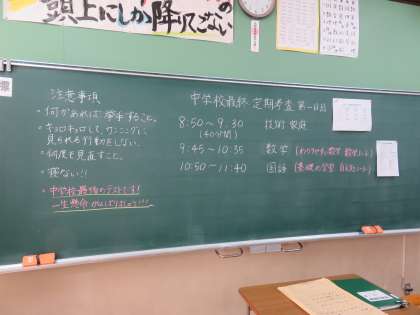 の
頭上にしか降りてこない
標
注意事項
・何かあれば挙手すること。
・キョロキョロして、カンニングに
見られる行動をしない。
・何度も見直すこと。
・寝ない!!
・中学校最後のテストです!
一生懸命がんばりましょう!!!
中学校最終 定期考査 第一日目
8:50 ~ 9:30 技術・家庭
(40分間)
9:45 ~ 10:35 数学
10:50 ~ 11:40 国語